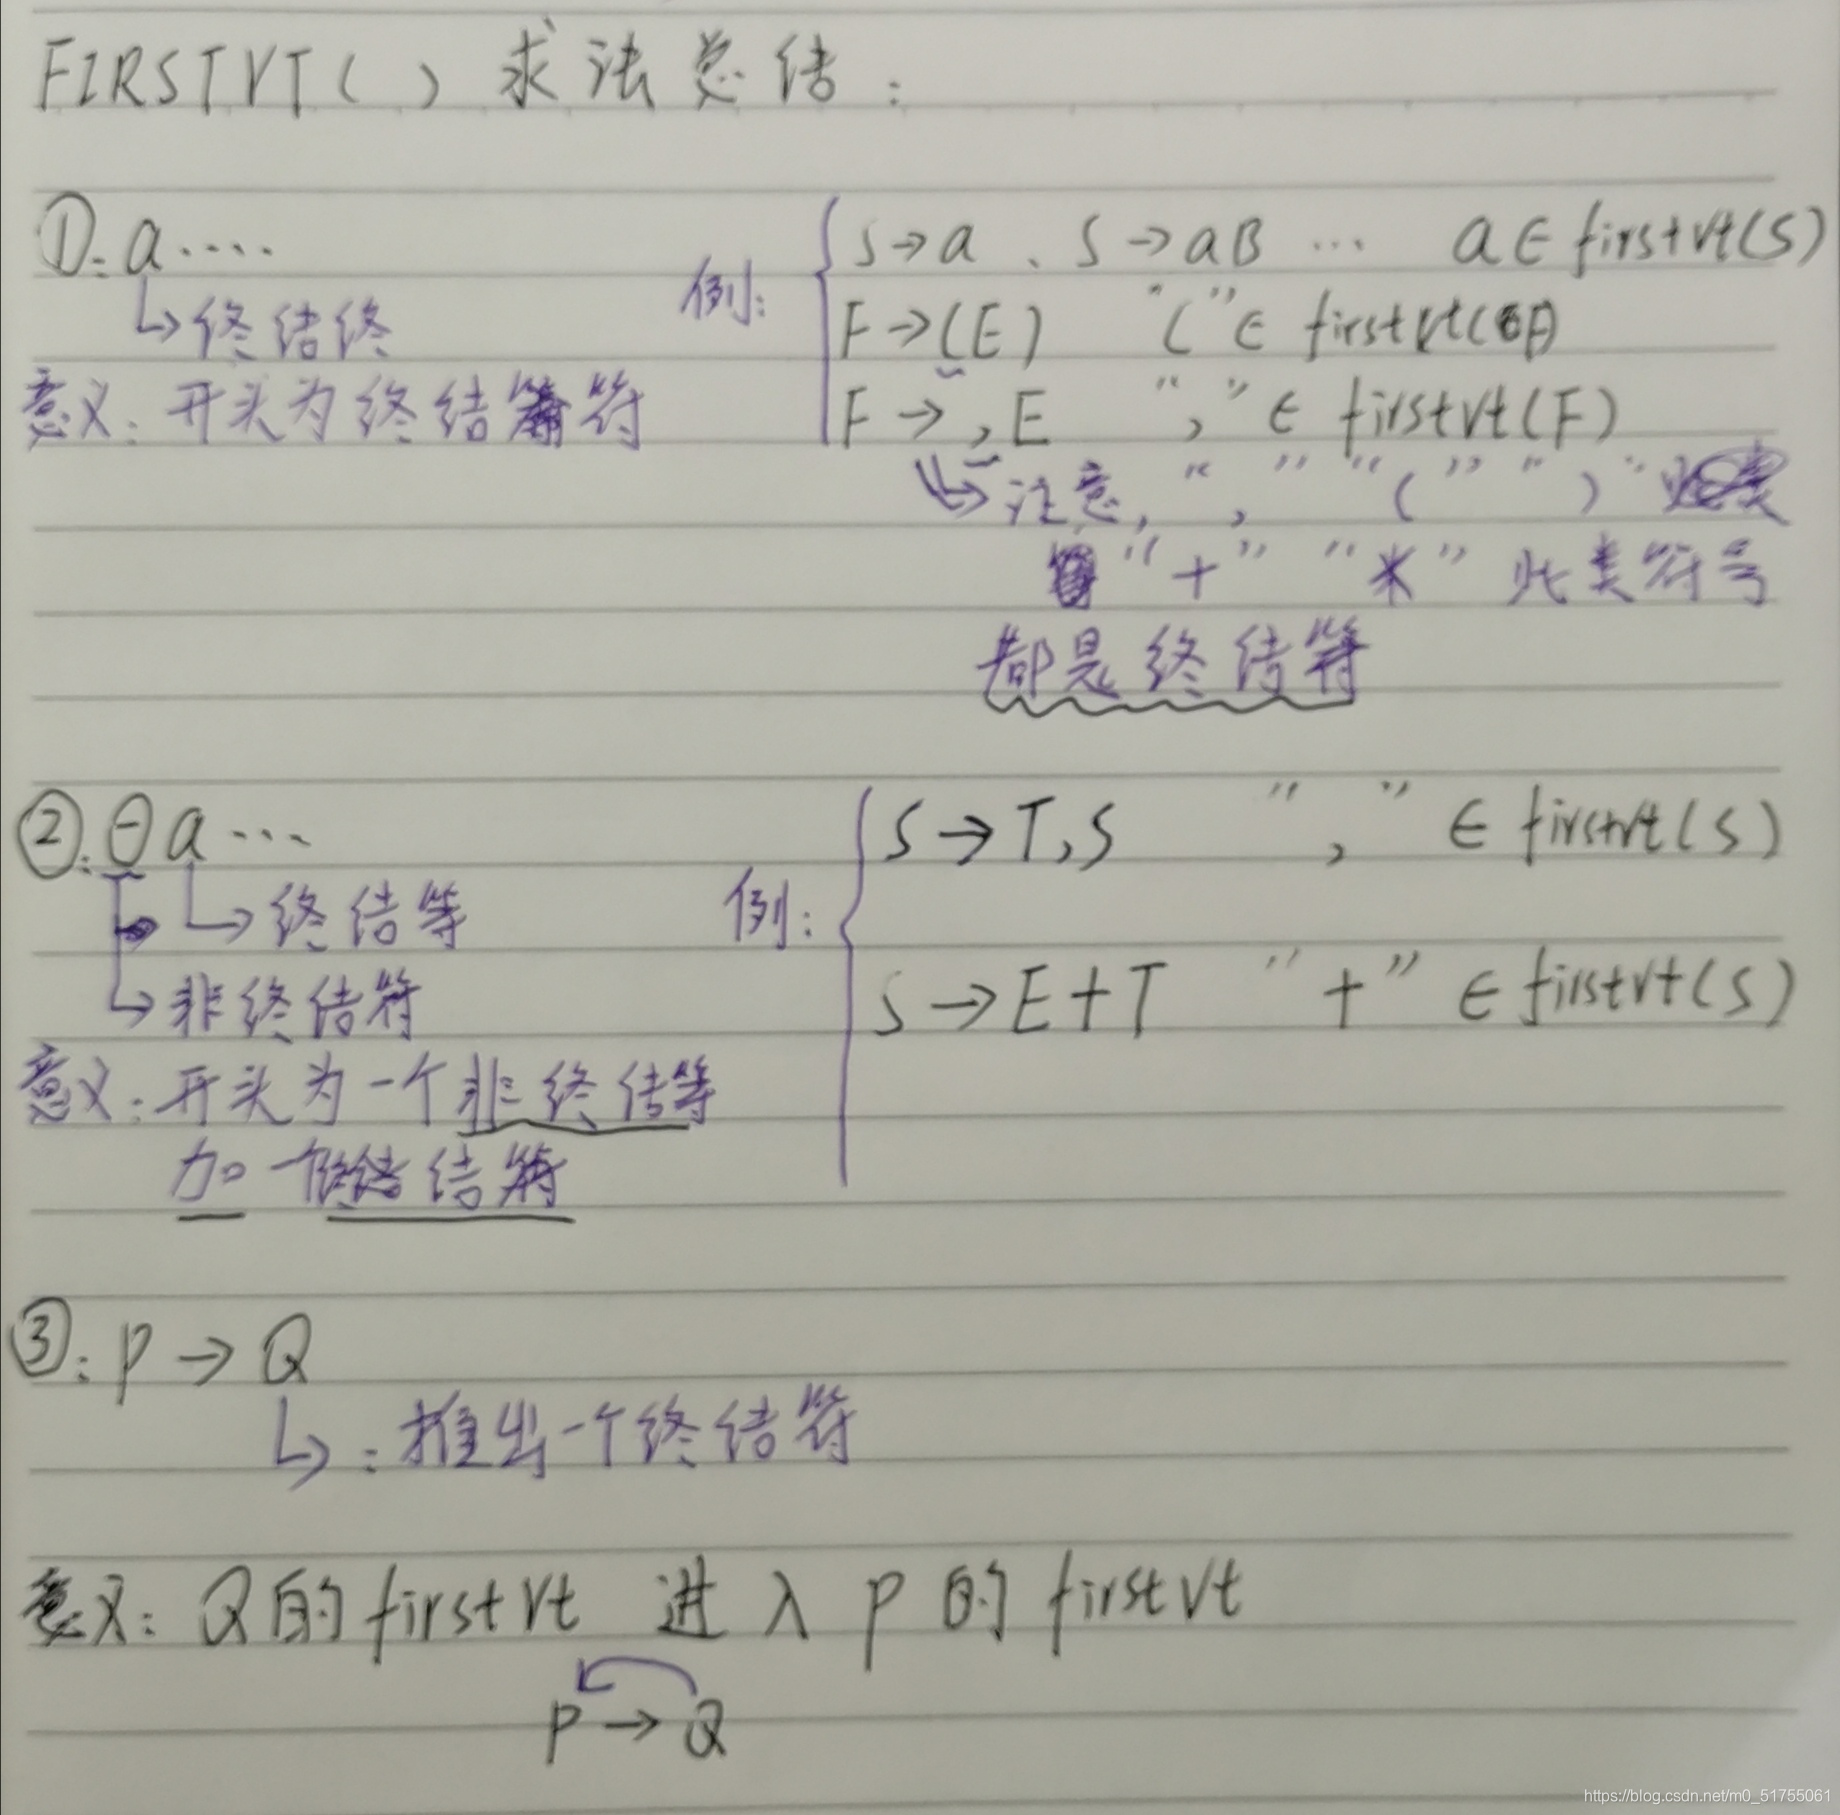 FIRSTVT( ) 求法总结：
①: a····
↳终结终
意义：开头为终结符
例：
S→a 、S→aB ··· a∈firstvt(S)
F→(E) "("∈ firstvt(F)
F→ ,E "," ∈ firstvt(F)
↳注意，"," "(" ")"
"+" "*" 此类符号
都是终结符
②: Θa···
↳终结符
↳非终结符
意义：开头为一个非终结符
加一个终结符
例：
S→T,S "," ∈ firstvt(S)
S→E+T "+" ∈ firstvt(S)
③: P→Q
↳：推出一个终结符
意义：Q的firstvt 进入 P的firstvt
P→Q
https://blog.csdn.net/m0_51755061